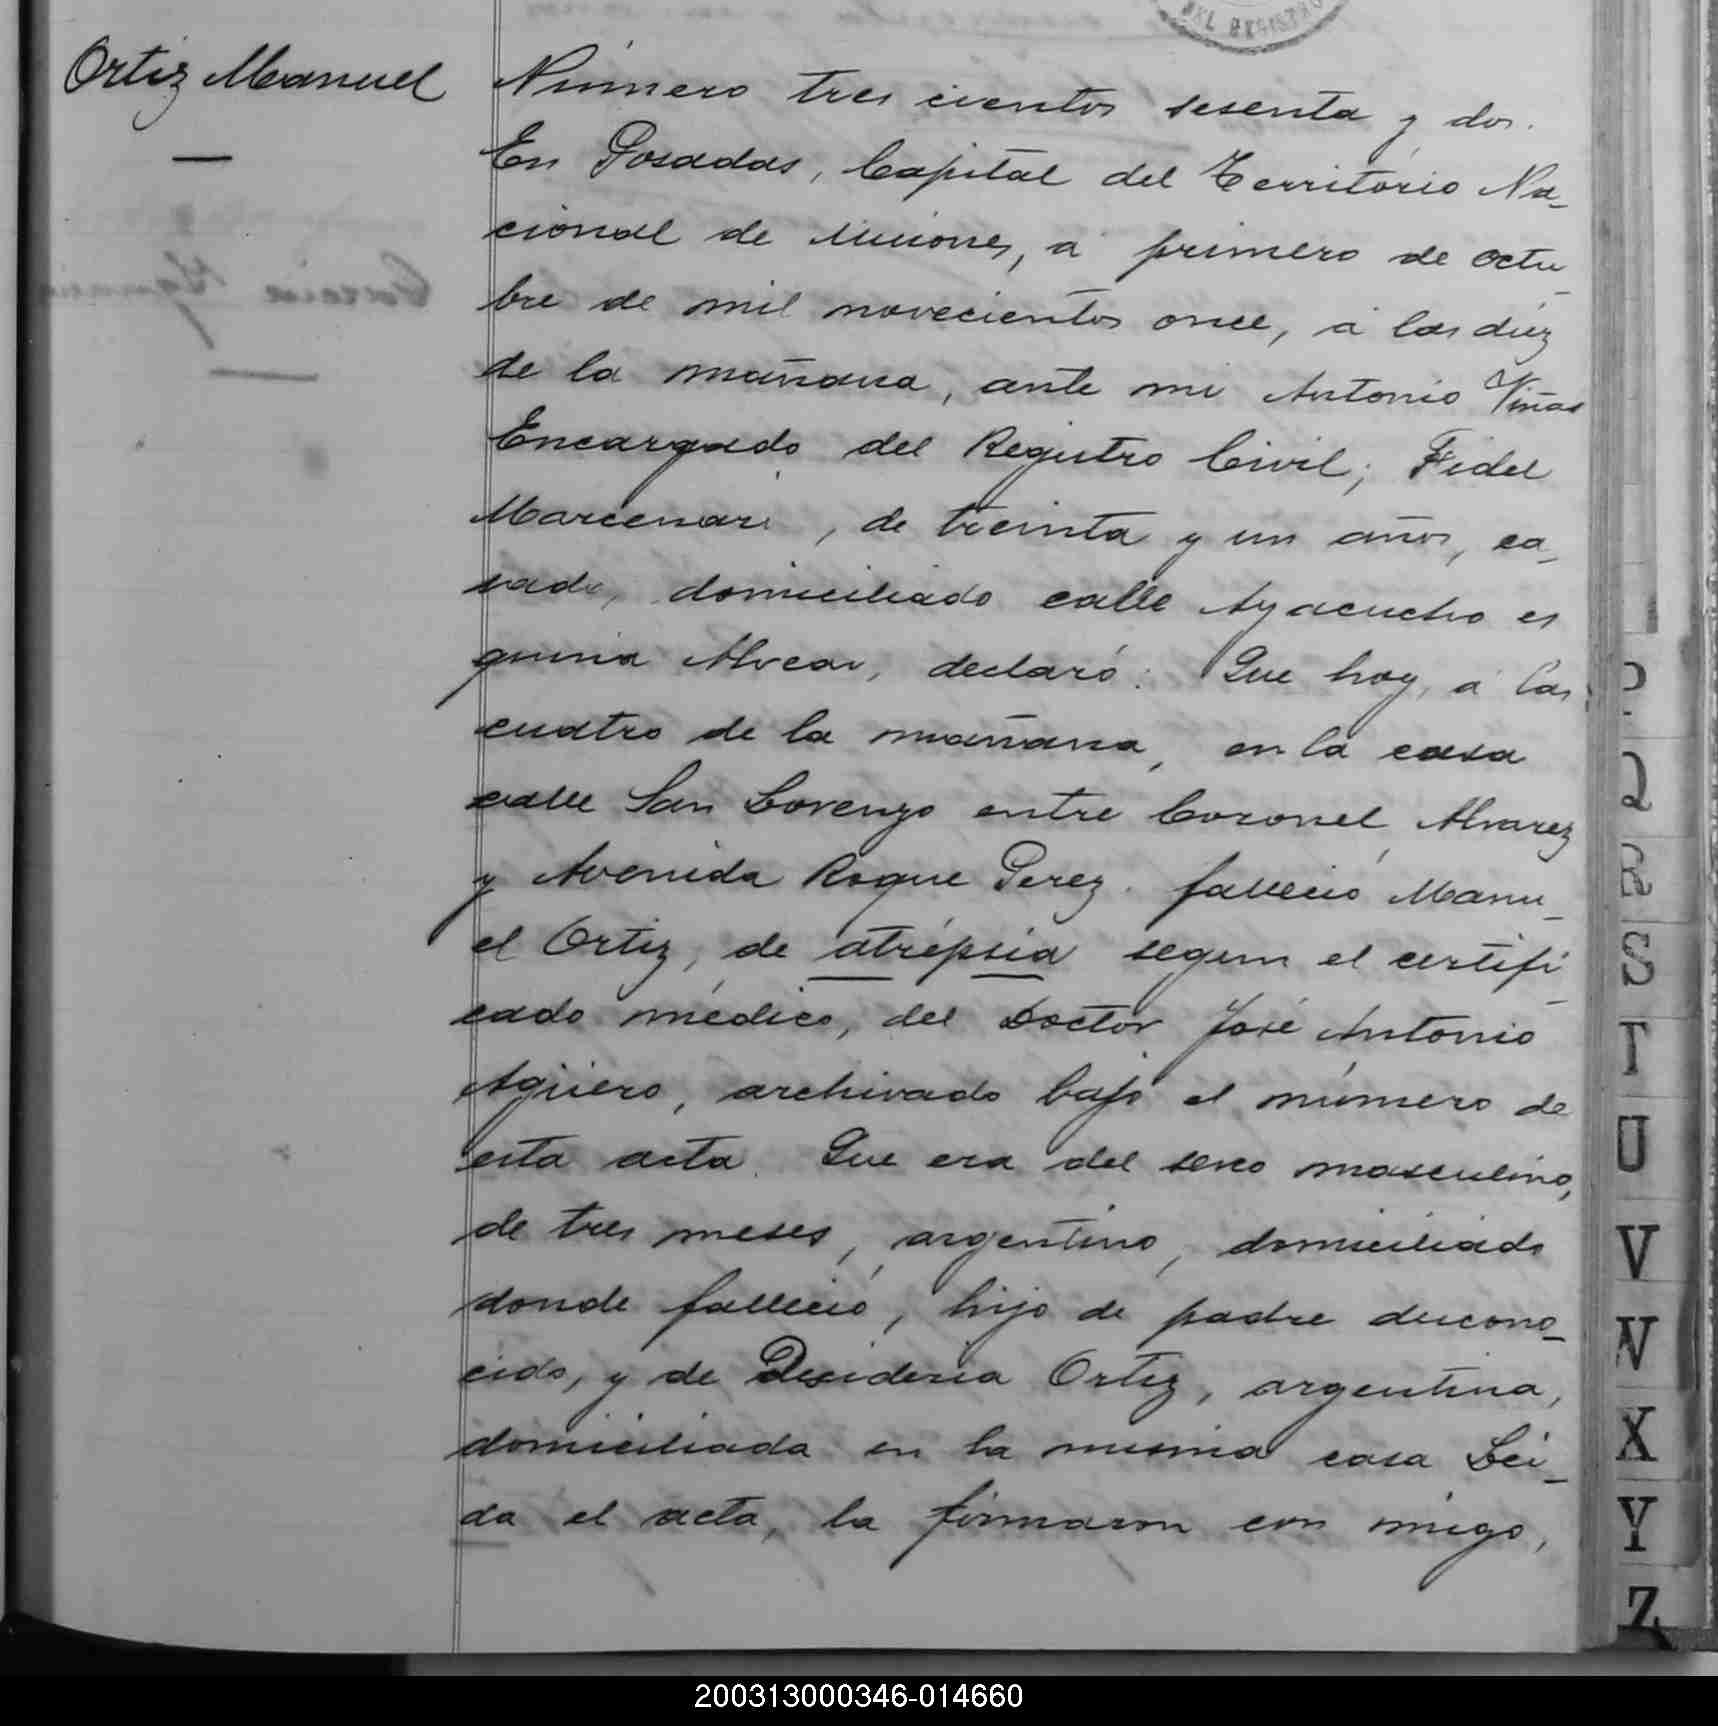 DEL REGISTRO
Ortiz Manuel
Número trescientos sesenta y dos.
En Posadas, Capital del Território Na_
cional de Misiones, á primero de octu_
bre de mil novecientos once, á las diéz
de la mañana, ante mi Antonio Viñas
Encargado del Registro Civil; Fidel
Marcenari, de treinta y un años, ca_
sado, domiciliado calle Ayacucho es
quina Alvear, declaró: Que hoy, á las
cuatro de la mañana, en la casa
calle San Lorenzo entre Coronel Alvarez
y Avenida Roque Perez. falleció Manu_
el Ortiz, de atrépsia segun el certifi_
cado médico, del Doctor José Antonio
Agüero, archivado bajo el número de
esta acta. Que era del sexo masculino,
de tres meses, argentino, domiciliado
donde falleció, hijo de padre descono_
cido, y de Desideria Ortiz, argentina,
domiciliada en la misma casa Lei_
da el acta, la firmaron con migo,
P
Q
R
S
T
U
V
W
X
Y
Z
200313000346-014660